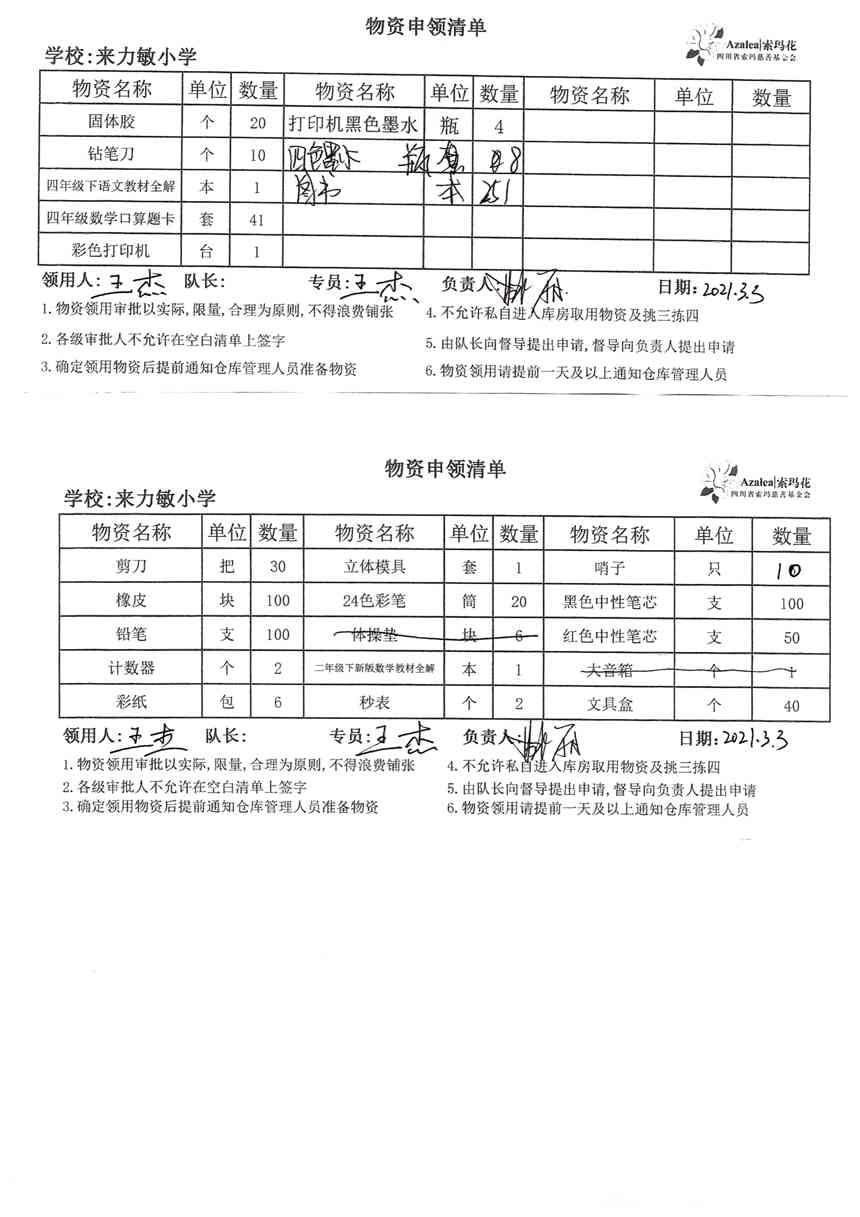 物资申领清单
Azalea|索玛花
四川省索玛慈善基金会
学校:来力敏小学
物资名称 单位 数量 物资名称 单位 数量 物资名称 单位 数量
固体胶 个 20 打印机黑色墨水 瓶 4
钻笔刀 个 10 四色墨水 瓶 8
四年级下语文教材全解 本 1 图书 本 251
四年级数学口算题卡 套 41
彩色打印机 台 1
领用人:王杰 队长: 专员:王杰 负责人: 日期:2021.3.3
1.物资领用审批以实际,限量,合理为原则,不得浪费铺张 4.不允许私自进入库房取用物资及挑三拣四
2.各级审批人不允许在空白清单上签字 5.由队长向督导提出申请,督导向负责人提出申请
3.确定领用物资后提前通知仓库管理人员准备物资 6.物资领用请提前一天及以上通知仓库管理人员
物资申领清单
Azalea|索玛花
四川省索玛慈善基金会
学校:来力敏小学
物资名称 单位 数量 物资名称 单位 数量 物资名称 单位 数量
剪刀 把 30 立体模具 套 1 哨子 只 10
橡皮 块 100 24色彩笔 筒 20 黑色中性笔芯 支 100
铅笔 支 100 体操垫 块 6 红色中性笔芯 支 50
计数器 个 2 二年级下新版数学教材全解 本 1 大音箱 个 1
彩纸 包 6 秒表 个 2 文具盒 个 40
领用人:王杰 队长: 专员:王杰 负责人: 日期:2021.3.3
1.物资领用审批以实际,限量,合理为原则,不得浪费铺张 4.不允许私自进入库房取用物资及挑三拣四
2.各级审批人不允许在空白清单上签字 5.由队长向督导提出申请,督导向负责人提出申请
3.确定领用物资后提前通知仓库管理人员准备物资 6.物资领用请提前一天及以上通知仓库管理人员